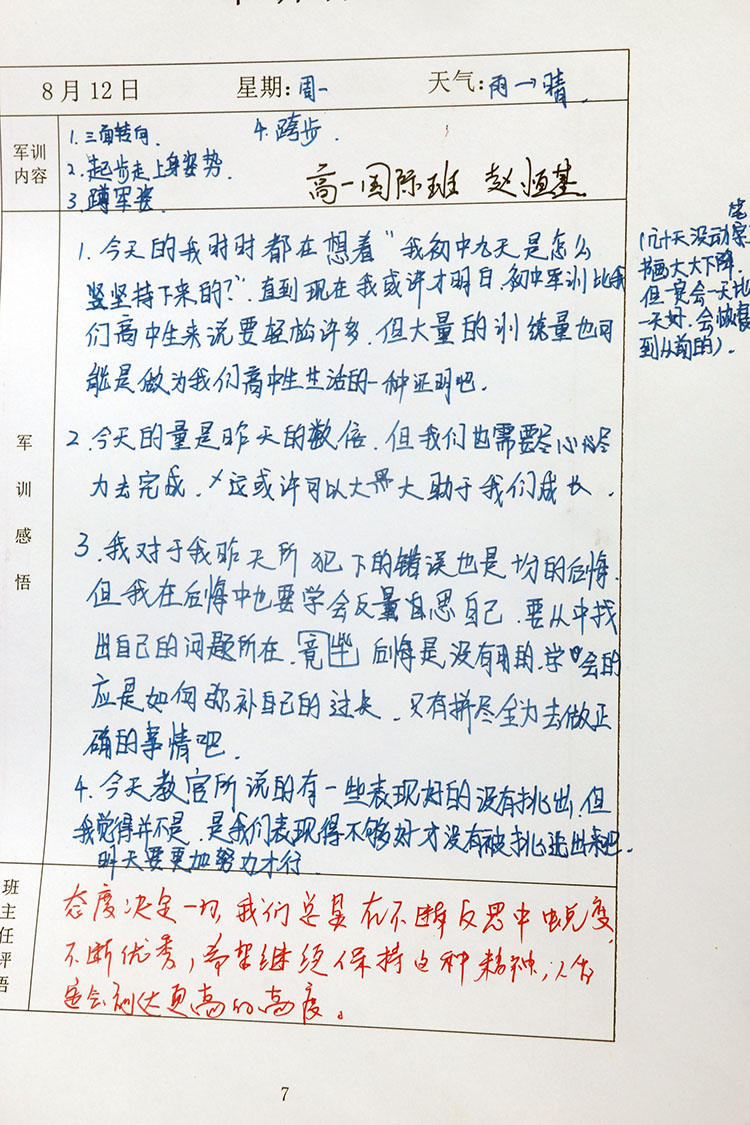 8月12日 星期:周一 天气:雨→晴.
军训内容
1.三面转向. 4.跨步.
2.起步走上身姿势.
3.蹲军姿
高一国际班 赵恒基
军训感悟
1.今天的我时时都在想着"我初中九天是怎么
坚持下来的?".直到现在我或许才明白,初中军训比我
们高中生来说要轻松许多.但大量的训练量也可
能是做为我们高中生生活的一种证明吧.
2.今天的量是昨天的数倍.但我们也需要尽心尽
力去完成.这或许可以大大助于我们成长.
3.我对于我昨天所犯下的错误也是十分的后悔.
但我在后悔中也要学会反思自己.要从中找
出自己的问题所在.竟 后悔是没有用的.学会的
应是如何弥补自己的过失.只有拼尽全力去做正
确的事情吧.
4.今天教官所说的有一些表现好的没有挑出.但
我觉得并不是.是我们表现得不够好才没有被挑出来吧.
明天要更加努力才行.
(几十天没动笔
书画大大下降.
但一定会一天比
一天好.会恢复
到从前的).
班主任评语
态度决定一切,我们总是在不断反思中蜕变,
不断优秀,希望继续保持这种精神,人生
定会到达更高的高度。
7